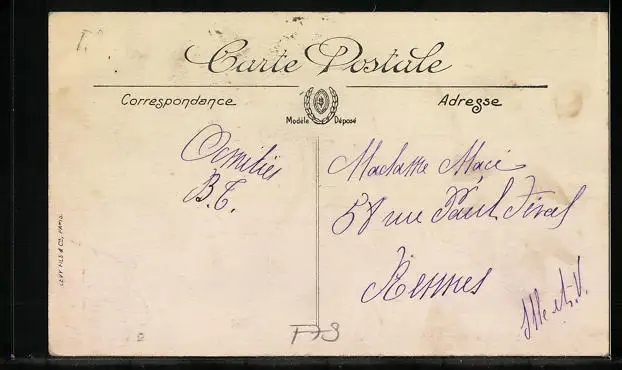 Carte Postale
Correspondance
Adresse
Modèle Déposé
Amitiés
B.T.
Madame Macé
58 rue Paul Féval
Rennes
Ille et V.
LEVY FILS & Cie, PARIS.